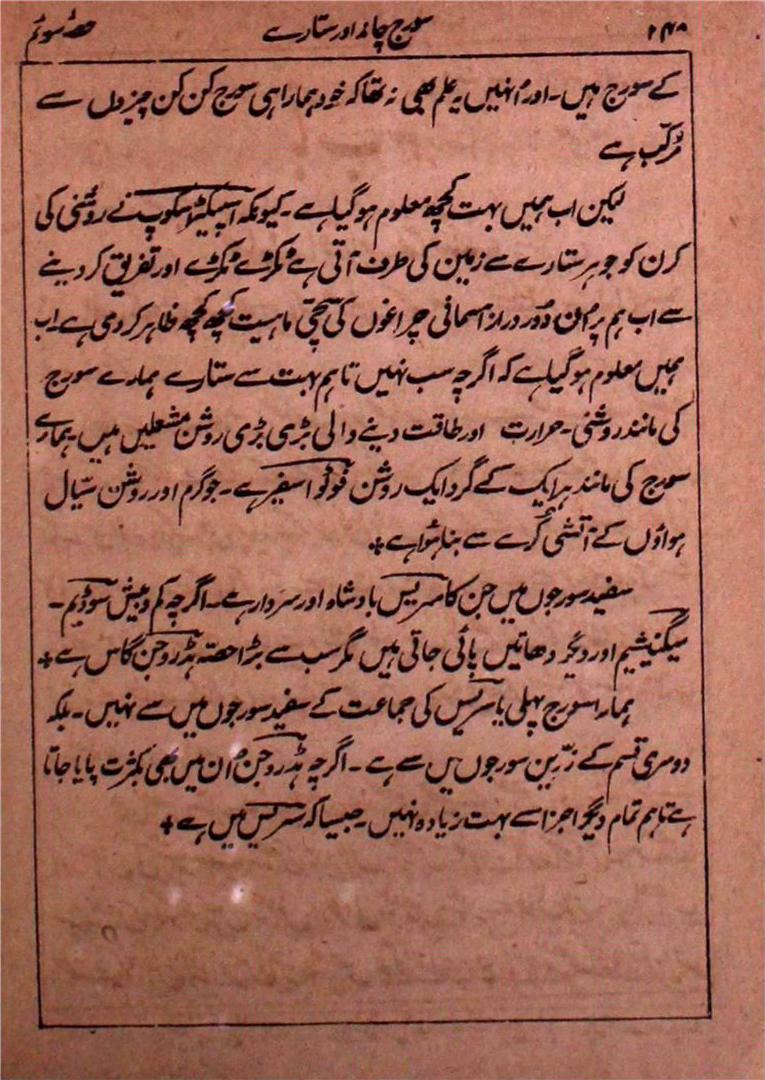 ۲۴۸ سورج چاند اور ستارے حصہ سوئم
کے سورج ہیں۔ اور اُنہیں یہ علم بھی نہ تھا کہ خود ہمارا ہی سورج کن کن چیزوں سے
مُرکّب ہے
لیکن اب ہمیں بہت کچھ معلوم ہوگیا ہے۔ کیونکہ اسپکیٹراسکوپ نے روشنی کی
کرن کو جو ہر ستارے سے زمین کی طرف آتی ہے ٹکڑے ٹکڑے اور تفریق کر دینے
سے اب ہم پر اُن دُور دراز آسمانی چراغوں کی سچّی ماہیت کچھ کچھ ظاہر کردی ہے۔ اب
ہمیں معلوم ہوگیا ہے کہ اگرچہ سب نہیں تاہم بہت سے ستارے ہمارے سورج
کی مانند روشنی۔ حرارت اور طاقت دینے والی بڑی بڑی روشن مشعلیں ہیں۔ ہمارے
سورج کی مانند ہر ایک کے گرد ایک روشن فوٹو اسفیر ہے۔ جو گرم اور روشن سیّال
ہواؤں کے آتشی کُرے سے بنا ہوُا ہے +
سفید سورجوں میں جن کا سریس بادشاہ اور سردار ہے۔ اگرچہ کم و بیش سوڈیم۔
میگنیشیم اور دیگر دھاتیں پائی جاتی ہیں مگر سب سے بڑا حصّہ ہڈروجن گاس ہے +
ہمارا سورج پہلی یا سریس کی جماعت کے سفید سورجوں میں سے نہیں۔ بلکہ
دوسری قسم کے زرّین سورجوں میں سے ہے۔ اگرچہ ہڈروجن اُن میں بھی بکثرت پایا جاتا
ہے تاہم تمام دیگر اجزا سے بہت زیادہ نہیں۔ جیسا کہ سریس میں ہے +